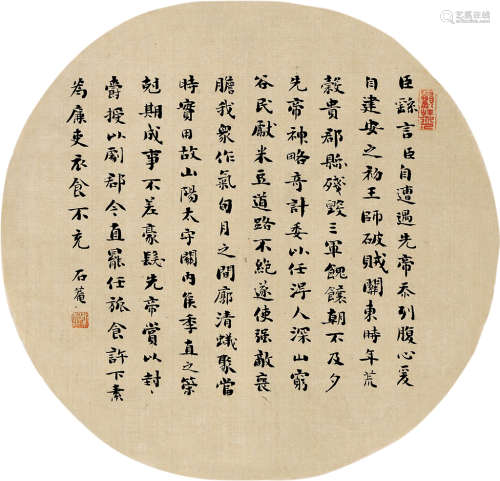 臣繇言臣自遭遇先帝忝列腹心爰
自建安之初王師破賊關東時年荒
穀貴郡縣殘毀三軍餽饟朝不及夕
先帝神略奇計委以任得人深山窮
谷民獻米豆道路不絶遂使强敵喪
膽我衆作氣旬月之間廓清蟻聚當
時實用故山陽太守關內侯季直之策
尅期成事不差豪髮先帝賞以封
爵授以劇郡今直罷任旅食許下素
為廉吏衣食不充 石菴